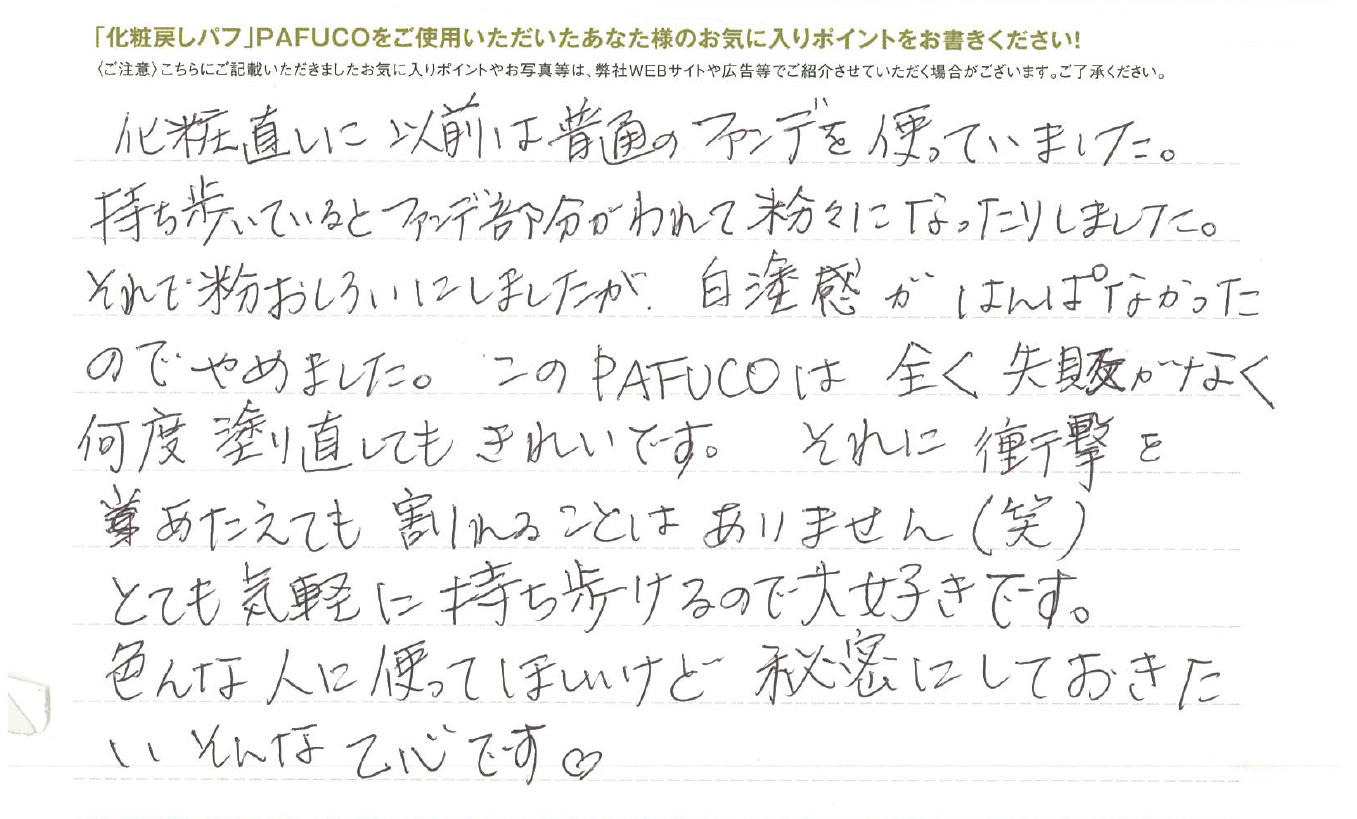 「化粧戻しパフ」PAFUCOをご使用いただいたあなた様のお気に入りポイントをお書きください!
〈ご注意〉こちらにご記載いただきましたお気に入りポイントやお写真等は、弊社WEBサイトや広告等でご紹介させていただく場合がございます。ご了承ください。
化粧直しに以前は普通のファンデを使っていました。
持ち歩いているとファンデ部分がわれて粉々になったりしました。
それで粉おしろいにしましたが、白塗感がはんぱなかった
のでやめました。このPAFUCOは全く失敗がなく
何度塗り直してもきれいです。それに衝撃を
あたえても割れることはありません(笑)
とても気軽に持ち歩けるので大好きです。
色んな人に使ってほしいけど秘密にしておきた
いそんな乙心です♡